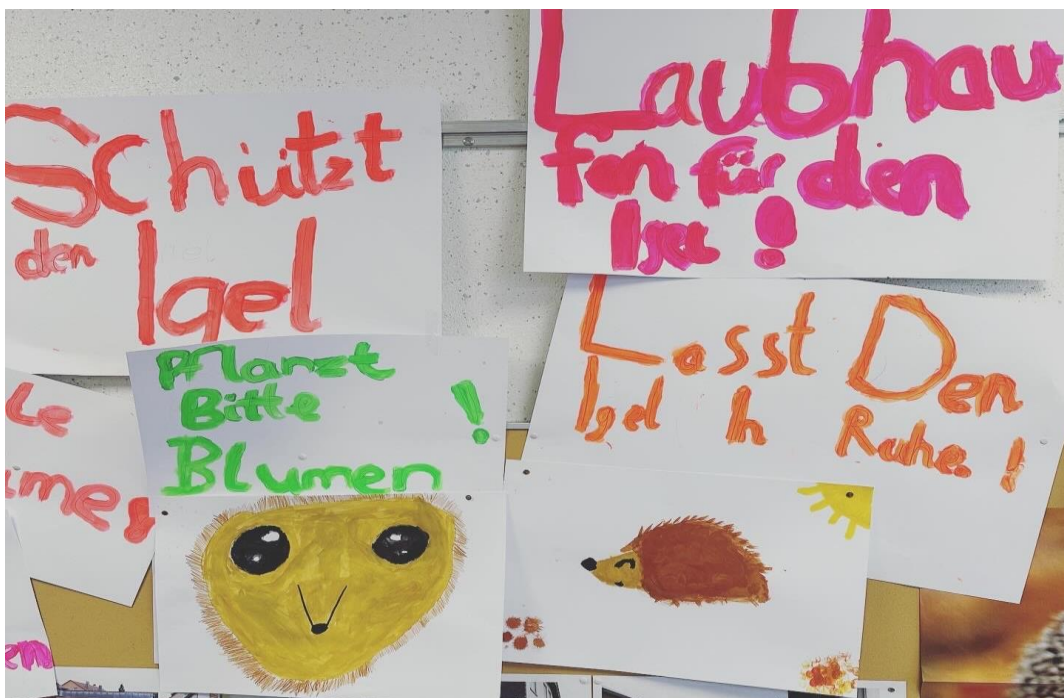 Schützt
den Igel
Laubhau
fen für den
Igel !
Pflanzt
Bitte !
Blumen
Lasst Den
Igel In Ruhe !